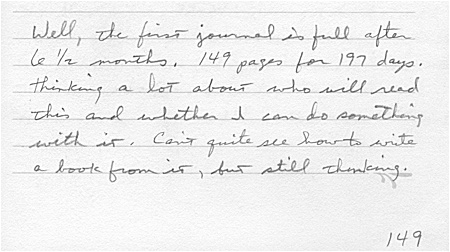 Well, the first journal is full after
6 1/2 months. 149 pages for 197 days.
Thinking a lot about who will read
this and whether I can do something
with it. Can't quite see how to write
a book from it, but still thinking.
149